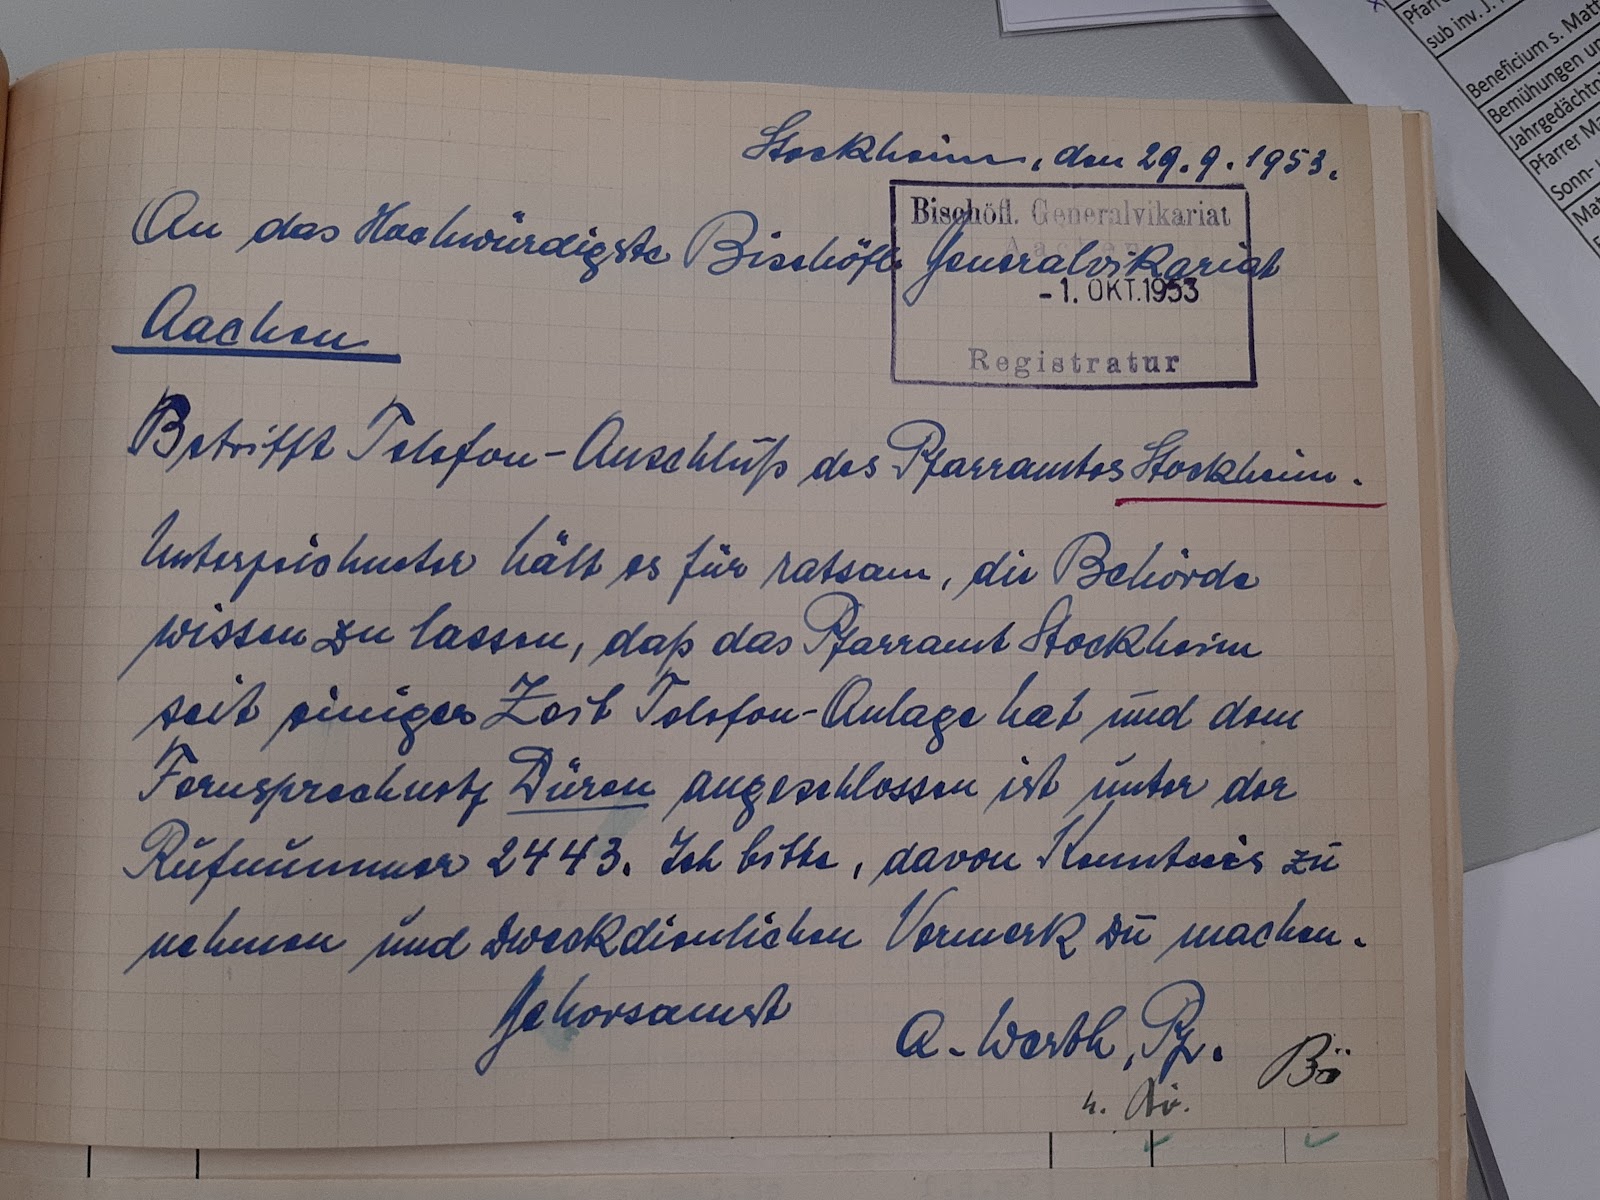 Stockheim, den 29.9.1953.
Bischöfl. Generalvikariat
Aachen
-1. OKT. 1953
Registratur
An das Hochwürdigste Bischöfl. Generalvikariat
Aachen
Betrifft Telefon-Anschluß des Pfarramtes Stockheim.
Unterzeichneter hält es für ratsam, die Behörde
wissen zu lassen, daß das Pfarramt Stockheim
seit einiger Zeit Telefon-Anlage hat und dem
Fernsprechnetz Düren angeschlossen ist unter der
Rufnummer 2443. Ich bitte, davon Kenntnis zu
nehmen und zweckdienlichen Vermerk zu machen.
Gehorsamst
A. Werth, Pfr.
Bö
Pfarre
sub inv. J.
Beneficium s. Matt
Bemühungen un
Jahrgedächtni
Pfarrer Ma
Sonn-
Mat